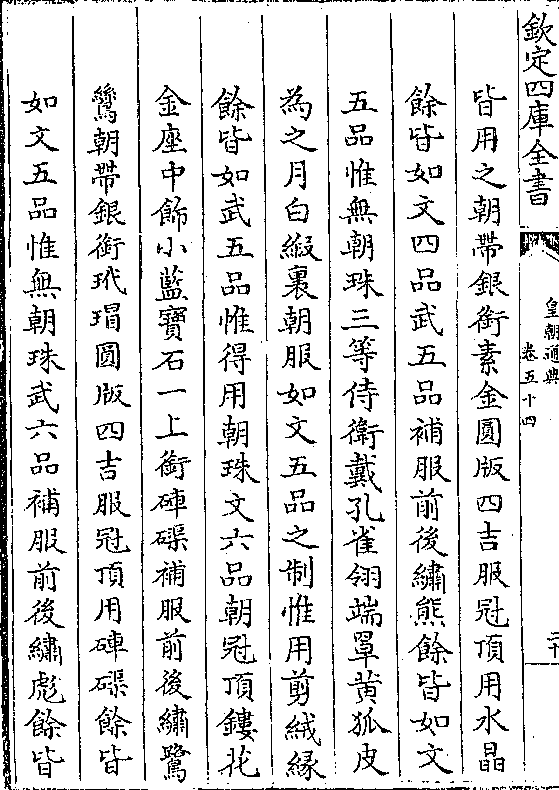 欽定四庫全書
皇朝通典
卷五十四
二十
皆用之朝帶銀銜素金圓版四吉服冠頂用水晶
餘皆如文四品武五品補服前後繡熊餘皆如文
五品惟無朝珠三等侍衛戴孔雀翎端罩黄狐皮
為之月白緞裏朝服如文五品之制惟用剪絨緣
餘皆如武五品惟得用朝珠文六品朝冠頂鏤花
金座中飾小藍寶石一上銜硨磲補服前後繡鷺
鷥朝帶銀銜玳瑁圓版四吉服冠頂用硨磲餘皆
如文五品惟無朝珠武六品補服前後繡彪餘皆